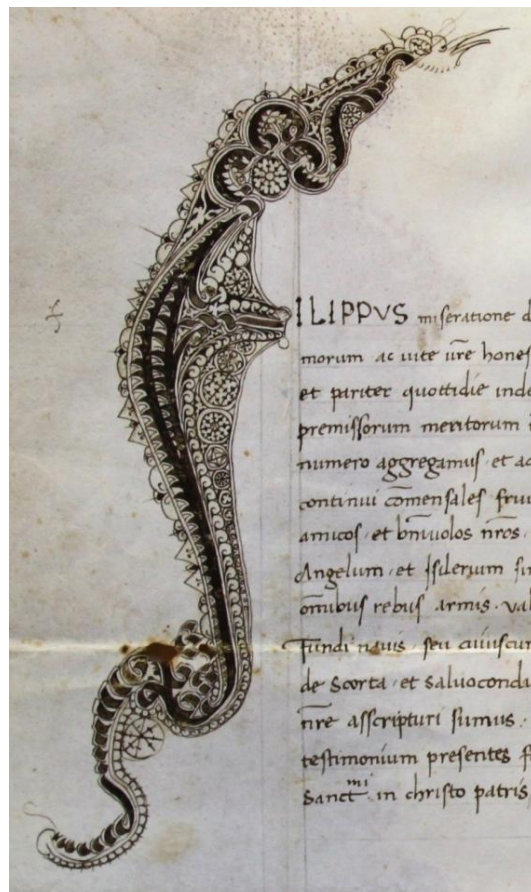 ILIPPVS miseratione d
morum ac uite ūre hones
et pariter quottidie inde
premissorum meritorum
numero aggregamus · et ac
continui cōmensales frui
amicos · et bn̄iuolos nr̄os ·
Angelum · et Isilerium
om̄ibus rebus armis · val
Fundi nauis · seu cuiuscun
de Scorta · et saluocondu
nr̄e asscripturi sumus ·
testimonium presentes f
Sanctmi in christo patris